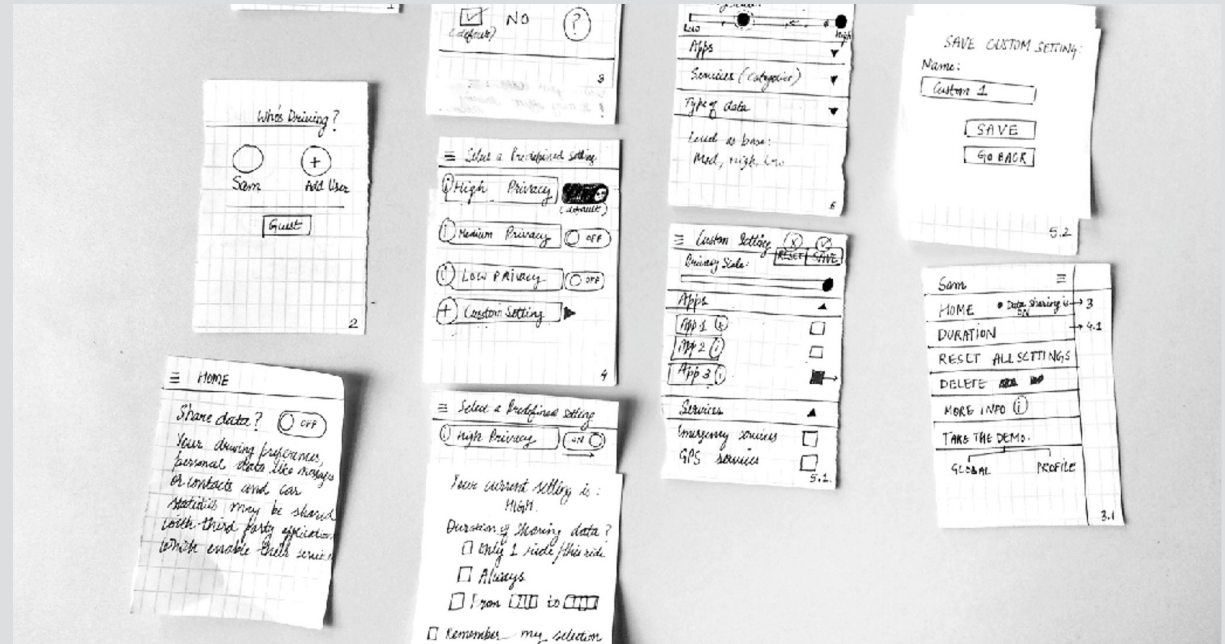 1
Who's Driving?
+
Sam
Add User
Guest
2
HOME
Share data? OFF
Your driving preferences,
personal data like messages
or contacts and car
statistics may be shared
with third party application
which enable their
NO
?
(default)
3
Select a Predefined Setting
i High Privacy
(default)
i Medium Privacy OFF
i LOW PRIVACY OFF
+ Custom Setting
4
Select a Predefined Setting
i High Privacy ON
Your current setting is:
HIGH.
Duration of sharing data?
Only 1 ride/this ride
Always
From to
Remember my selection
Low
high
Apps
Services (Categories)
Type of data
Load as base:
Med, high, low
5
Custom Setting X
RESET SAVE
Privacy Scale:
Apps
App 1 i
App 2 i
App 3 i
Services
Emergency services
GPS services
5.1.
SAVE CUSTOM SETTING:
Name:
Custom 1
SAVE
GO BACK
5.2
Sam
HOME • Data sharing is ON → 3
DURATION → 4.1
RESET ALL SETTINGS
DELETE
MORE INFO i
TAKE THE DEMO.
GLOBAL PROFILE
3.1